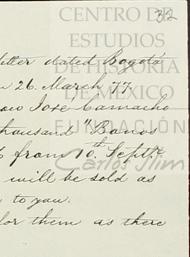 CENTRO DE
ESTUDIOS
DE HISTORIA
DE MÉXICO
FUNDACIÓN
Carlos Slim
32
letter dated Bogotá
26 March 77
José Camacho
thousand "Bonos
from 10th Septr
will be sold as
to you.
for them as there